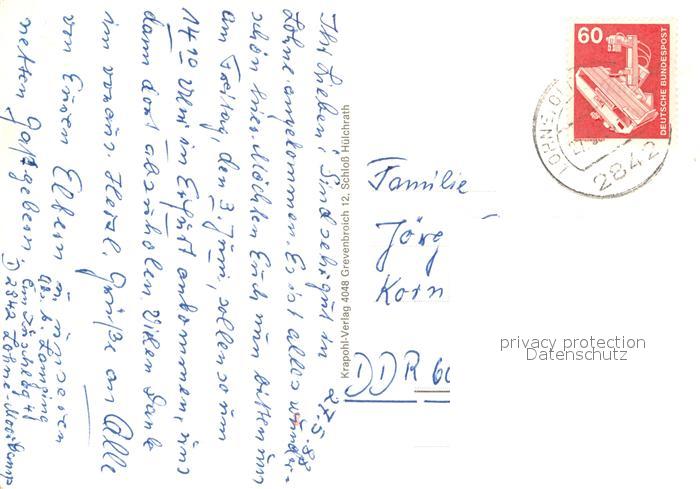 27.5.88
Ihr Lieben, Sind sehr gut in
Lohne angekommen. Es ist alles wunder-
schön hier. Möchten Euch nun bitten uns
am Freitag, den 3. Juni, sollen so um
14,10 Uhr in Erfurt ankommen, uns
dann dort abzuholen. Vielen Dank
im voraus. Herzl. Grüße an Alle
von Euren Eltern u. unseren
netten Gastgebern.
2842 Lohne-Moorkamp
Krapohl-Verlag 4048 Grevenbroich 12, Schloß Hülchrath
60
DEUTSCHE BUNDESPOST
LOHNE
2842
Familie
Jörg
Korn
DDR 60
privacy protection
Datenschutz